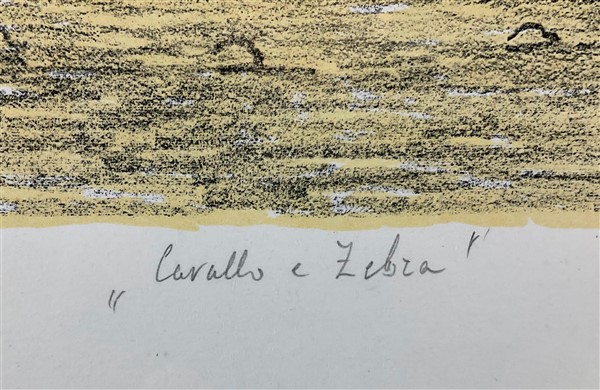 "Cavallo e Zebra"